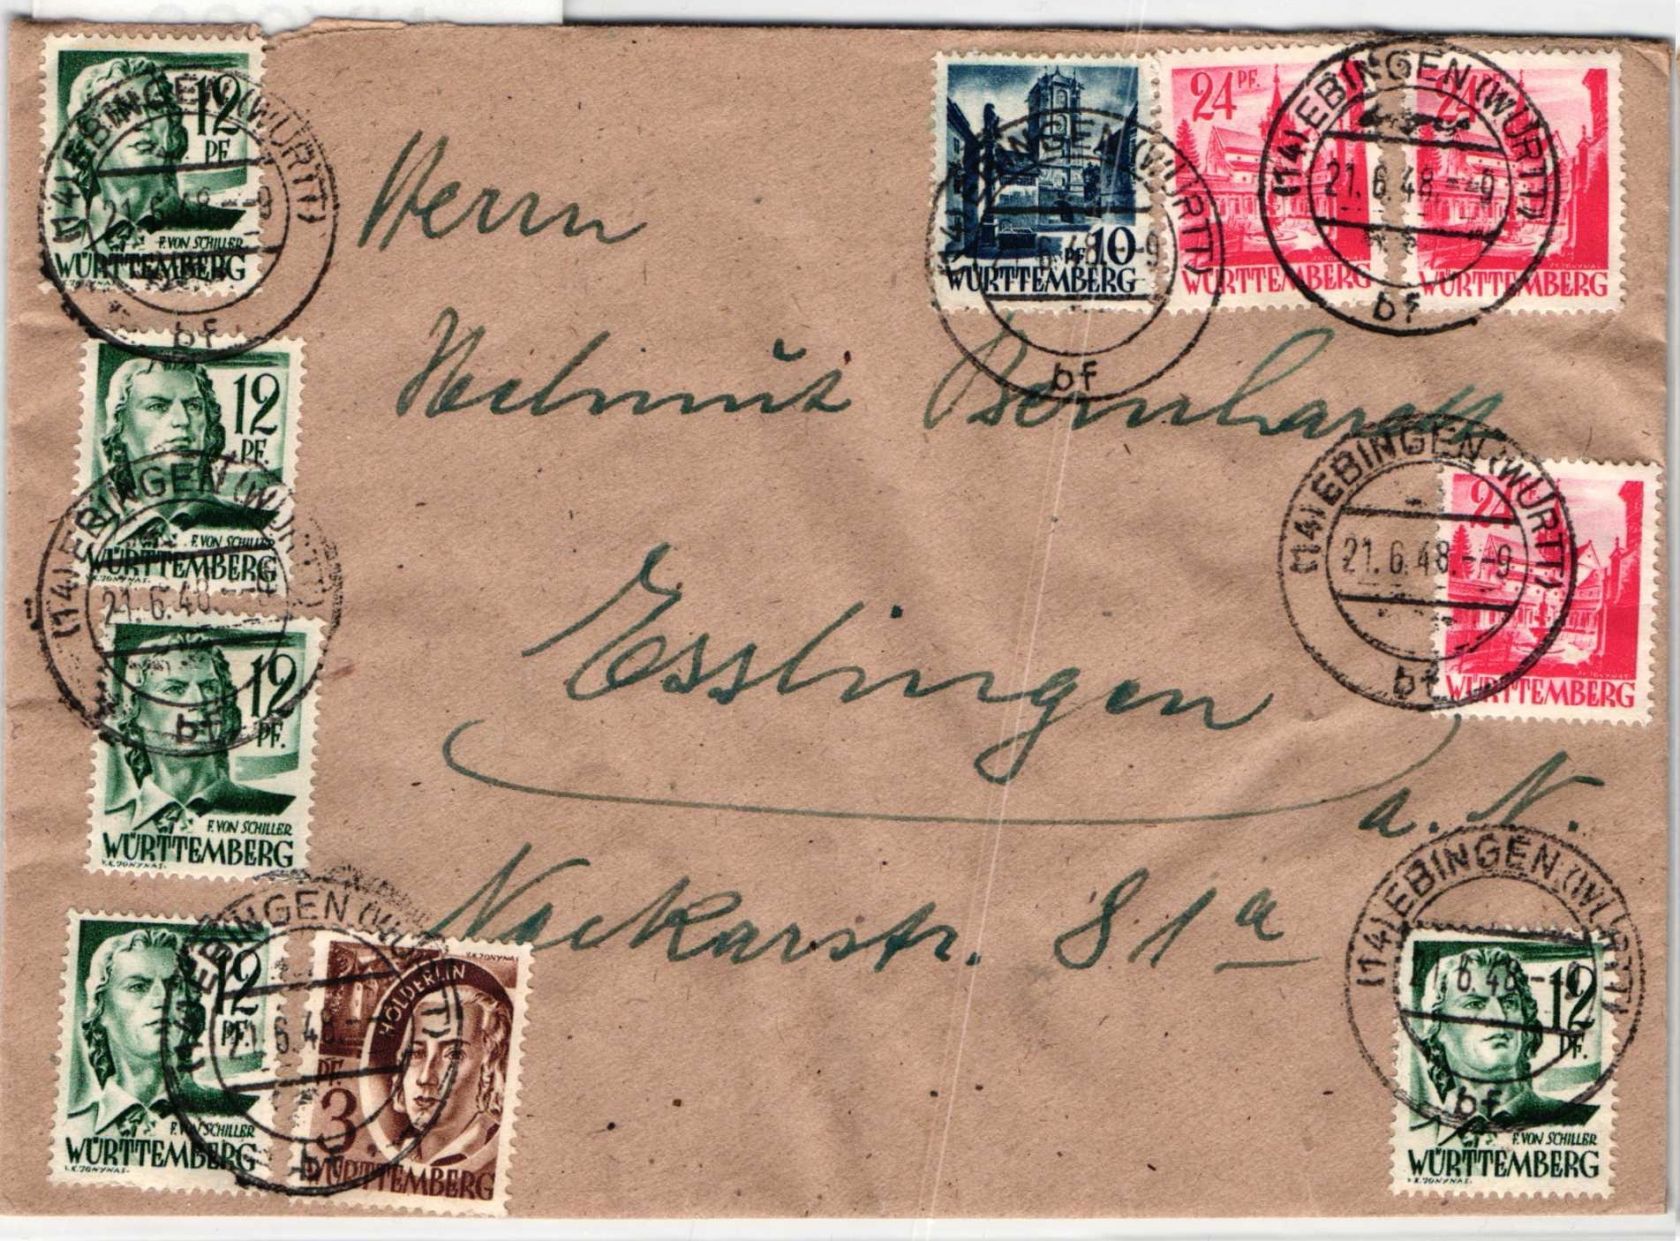 12
PF.
F. VON SCHILLER
WÜRTTEMBERG
(14) EBINGEN (WÜRTT)
21.6.48.--9
bf
PF 10
WÜRTTEMBERG
(14) EBINGEN (WÜRTT)
6.48.--9
bf
24 PF.
WÜRTTEMBERG
24
WÜRTTEMBERG
(14) EBINGEN (WÜRTT)
21.6.48.--9
bf
Herrn
Helmut Bernhardt
Esslingen
a. N.
Neckarstr. 81a
12
PF.
F. VON SCHILLER
WÜRTTEMBERG
V.K. JONYNAS.
(14) EBINGEN (WÜRTT)
21.6.48.--9
bf
12
PF.
F. VON SCHILLER
WÜRTTEMBERG
V.K. JONYNAS.
2
WÜRTTEMBERG
(14) EBINGEN (WÜRTT)
21.6.48.--9
bf
12
PF.
F. VON SCHILLER
WÜRTTEMBERG
V.K. JONYNAS.
(14) EBINGEN (WÜRTT)
21.6.48.-
bf
V.K. JONYNAS
HÖLDERLIN
PF.
3
WÜRTTEMBERG
(14) EBINGEN (WÜRTT)
21.6.48.--9
bf
12
PF.
F. VON SCHILLER
WÜRTTEMBERG
V.K. JONYNAS.